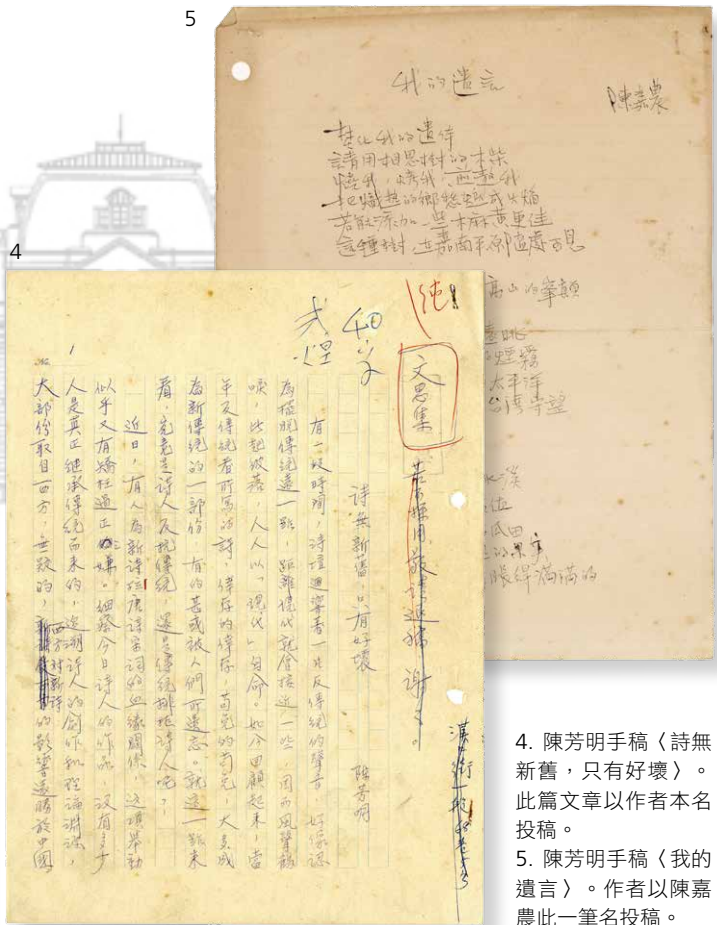 5
我的遺言
陳嘉農
焚化我的遺体
請用相思樹的木柴
燒我,烤我
把熾熱的鄉愁燃成火焰
若能添加一些木麻黄更佳
這種樹,在嘉南平原處處可見
高山的峯顛
遠眺
的煙霧
太平洋
台灣守望
瓜田
的果實
脹得滿滿的
4
文思集
若不採用敬請退稿 謝謝。
詩無新舊,只有好壞
陳芳明
有一段時間,詩壇迴響著一片反傳統的聲音,好像認
為擺脫傳統遠一點,距離現代就會接近一些,因而風聲鶴
唳,此起彼落,人人以「現代」自命。如今回顧起來,當
年反傳統者所寫的詩,倖存的倖存,苟免的苟免,大多成
為新傳統的一部份,有的甚或被人們所遺忘。就這一點來
看,究竟是詩人反抗傳統,還是傳統排拒詩人呢?
近日,有人為新詩和唐詩宋詞的血緣關係,這項舉動
似乎又有矯枉過正之嫌。細察今日詩人的作品,沒有多少
人是真正繼承傳統而來的,追溯詩人的創作和理論淵源,
大部份取自西方,無疑的,西方對新詩的影響遠勝於中國
4. 陳芳明手稿〈詩無
新舊,只有好壞〉。
此篇文章以作者本名
投稿。
5. 陳芳明手稿〈我的
遺言〉。作者以陳嘉
農此一筆名投稿。